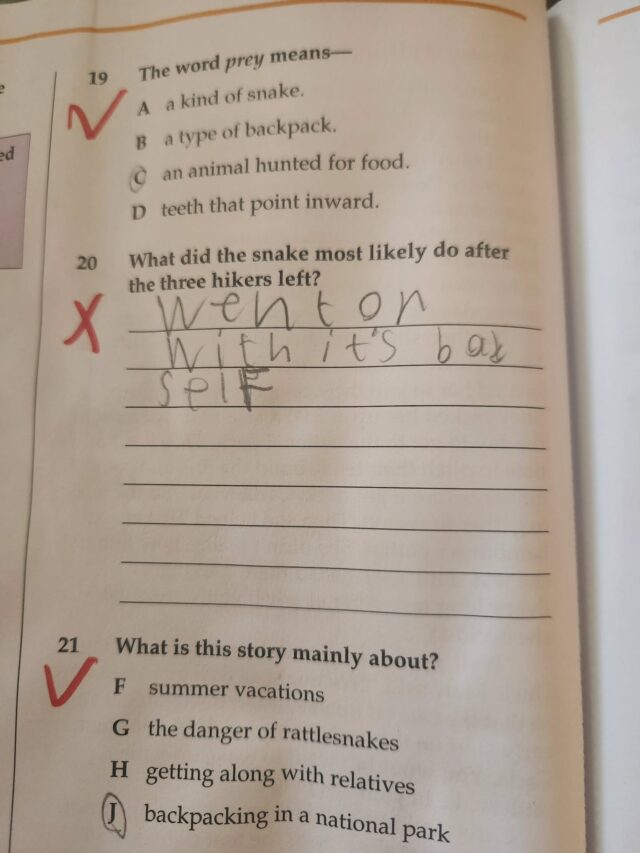 19 The word prey means—
A a kind of snake.
B a type of backpack.
C an animal hunted for food.
D teeth that point inward.
20 What did the snake most likely do after
the three hikers left?
went on
with it's bad
self
21 What is this story mainly about?
F summer vacations
G the danger of rattlesnakes
H getting along with relatives
J backpacking in a national park
ed